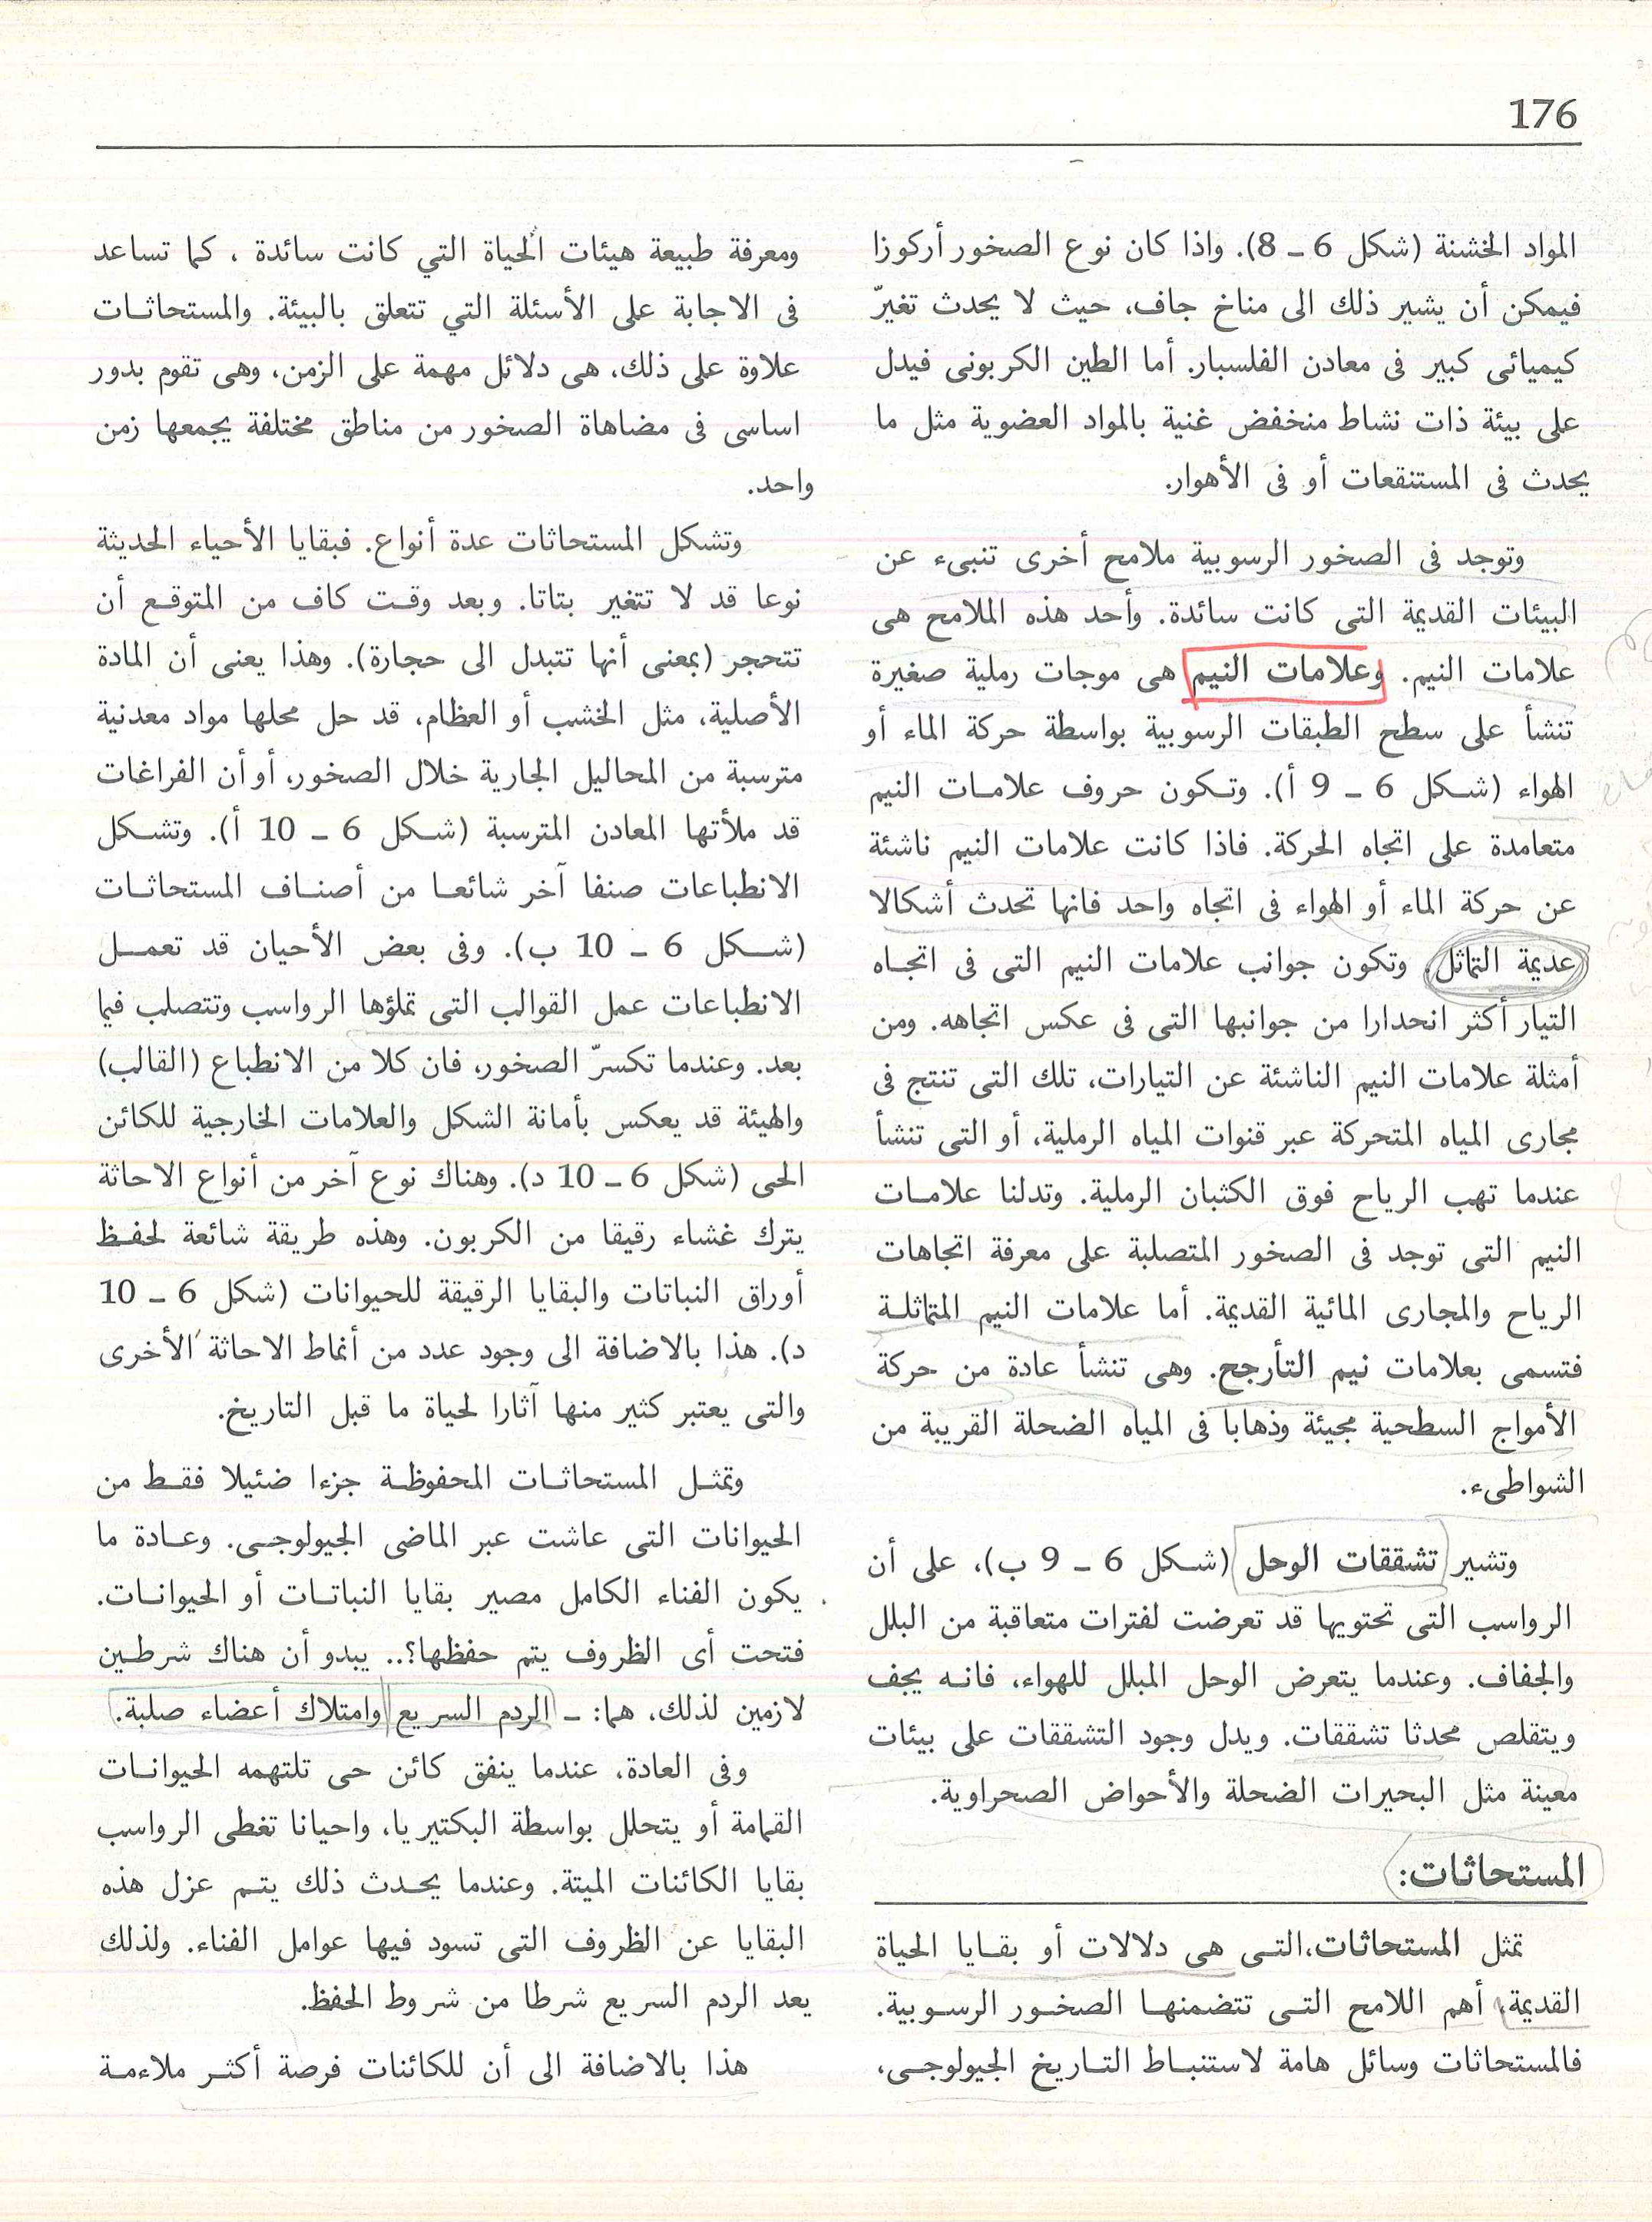 176
المواد الخشنة (شكل 6 ـ 8). واذا كان نوع الصخور أركوزا
فيمكن أن يشير ذلك الى مناخ جاف، حيث لا يحدث تغيّر
كيميائى كبير فى معادن الفلسبار. أما الطين الكربونى فيدل
على بيئة ذات نشاط منخفض غنية بالمواد العضوية مثل ما
يحدث فى المستنقعات أو فى الأهوار.
وتوجد فى الصخور الرسوبية ملامح أخرى تنبىء عن
البيئات القديمة التى كانت سائدة. وأحد هذه الملامح هى
علامات النيم. وعلامات النيم هى موجات رملية صغيرة
تنشأ على سطح الطبقات الرسوبية بواسطة حركة الماء أو
الهواء (شكل 6 ـ 9 أ). وتكون حروف علامات النيم
متعامدة على اتجاه الحركة. فاذا كانت علامات النيم ناشئة
عن حركة الماء أو الهواء فى اتجاه واحد فانها تحدث أشكالا
عديمة التماثل. وتكون جوانب علامات النيم التى فى اتجاه
التيار أكثر انحدارا من جوانبها التى فى عكس اتجاهه. ومن
أمثلة علامات النيم الناشئة عن التيارات، تلك التى تنتج فى
مجارى المياه المتحركة عبر قنوات المياه الرملية، أو التى تنشأ
عندما تهب الرياح فوق الكثبان الرملية. وتدلنا علامات
النيم التى توجد فى الصخور المتصلبة على معرفة اتجاهات
الرياح والمجارى المائية القديمة. أما علامات النيم المتماثلة
فتسمى بعلامات نيم التأرجح. وهى تنشأ عادة من حركة
الأمواج السطحية مجيئة وذهابا فى المياه الضحلة القريبة من
الشواطىء.
وتشير تشققات الوحل (شكل 6 ـ 9 ب)، على أن
الرواسب التى تحتويها قد تعرضت لفترات متعاقبة من البلل
والجفاف. وعندما يتعرض الوحل المبلل للهواء، فانه يجف
ويتقلص محدثا تشققات. ويدل وجود التشققات على بيئات
معينة مثل البحيرات الضحلة والأحواض الصحراوية.
المستحاثات:
تمثل المستحاثات،التى هى دلالات أو بقايا الحياة
القديمة، أهم اللامح التى تتضمنها الصخور الرسوبية.
فالمستحاثات وسائل هامة لاستنباط التاريخ الجيولوجى،
ومعرفة طبيعة هيئات الحياة التي كانت سائدة ، كما تساعد
فى الاجابة على الأسئلة التي تتعلق بالبيئة. والمستحاثات
علاوة على ذلك، هى دلائل مهمة على الزمن، وهى تقوم بدور
اساسى فى مضاهاة الصخور من مناطق مختلفة يجمعها زمن
واحد.
وتشكل المستحاثات عدة أنواع. فبقايا الأحياء الحديثة
نوعا قد لا تتغير بتاتا. وبعد وقت كاف من المتوقع أن
تتحجر (بمعنى أنها تتبدل الى حجارة). وهذا يعنى أن المادة
الأصلية، مثل الخشب أو العظام، قد حل محلها مواد معدنية
مترسبة من المحاليل الجارية خلال الصخور، أو أن الفراغات
قد ملأتها المعادن المترسبة (شكل 6 ـ 10 أ). وتشكل
الانطباعات صنفا آخر شائعا من أصناف المستحاثات
(شكل 6 ـ 10 ب). وفى بعض الأحيان قد تعمل
الانطباعات عمل القوالب التى تملؤها الرواسب وتتصلب فيما
بعد. وعندما تكسرّ الصخور، فان كلا من الانطباع (القالب)
والهيئة قد يعكس بأمانة الشكل والعلامات الخارجية للكائن
الحى (شكل 6 ـ 10 د). وهناك نوع آخر من أنواع الاحاثة
يترك غشاء رقيقا من الكربون. وهذه طريقة شائعة لحفظ
أوراق النباتات والبقايا الرقيقة للحيوانات (شكل 6 ـ 10
د). هذا بالاضافة الى وجود عدد من أنماط الاحاثة الأخرى
والتى يعتبر كثير منها آثارا لحياة ما قبل التاريخ.
وتمثل المستحاثات المحفوظة جزءا ضئيلا فقط من
الحيوانات التى عاشت عبر الماضى الجيولوجى. وعادة ما
يكون الفناء الكامل مصير بقايا النباتات أو الحيوانات.
فتحت أى الظروف يتم حفظها؟.. يبدو أن هناك شرطين
لازمين لذلك، هما: ـ الردم السريع وامتلاك أعضاء صلبة.
وفى العادة، عندما ينفق كائن حى تلتهمه الحيوانات
القمامة أو يتحلل بواسطة البكتيريا، واحيانا تغطى الرواسب
بقايا الكائنات الميتة. وعندما يحدث ذلك يتم عزل هذه
البقايا عن الظروف التى تسود فيها عوامل الفناء. ولذلك
يعد الردم السريع شرطا من شروط الحفظ.
هذا بالاضافة الى أن للكائنات فرصة أكثر ملاءمة